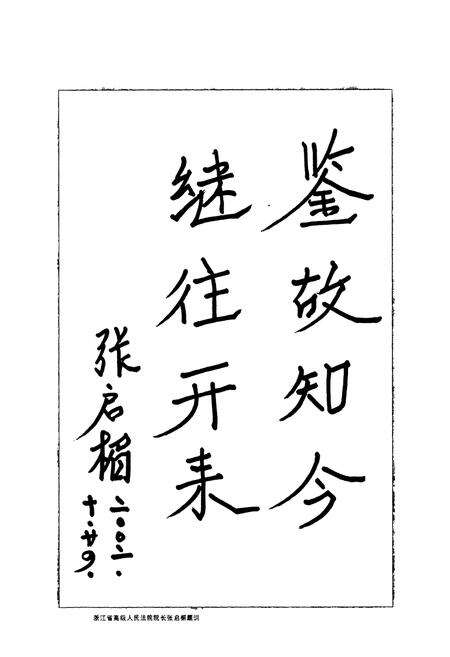 鉴故知今
继往开来
张启楣
二00二.
十.廿四.
浙江省高级人民法院院长张启楣题词